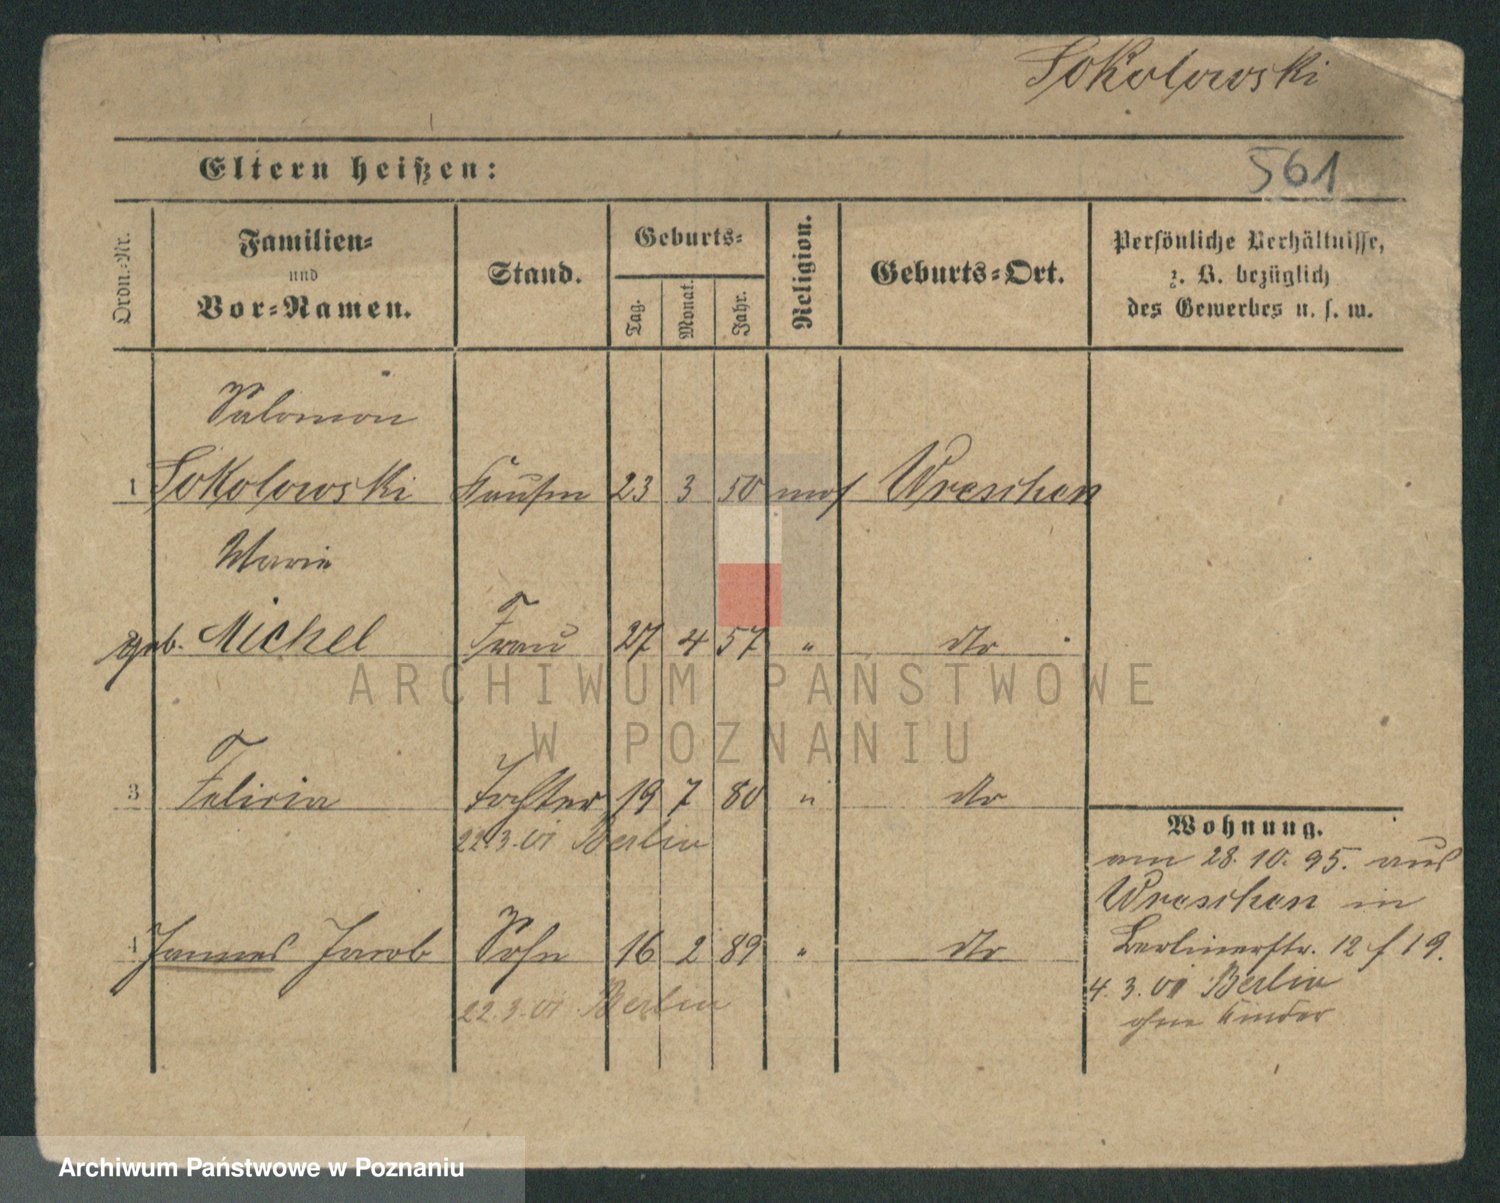 Sokolowski
Eltern heißen:
561
Ordn.-Nr.
Familien-
und
Vor-Namen.
Stand.
Geburts-
Tag.
Monat.
Jahr.
Religion.
Geburts-Ort.
Persönliche Verhältnisse,
z. B. bezüglich
des Gewerbes u. s. w.
Salomon
1 Sokolowski Kaufm 23 3 50 mos Wreschen
Marie
geb. Michel Frau 27 4 57 " do
ARCHIWUM PAŃSTWOWE
W POZNANIU
3 Felicia Tochter 19 7 80 " do
22.3.01 Berlin
4 Jannes Jacob Sohn 16 2 89 " do
22.3.01 Berlin
Wohnung.
am 28. 10. 95. aus
Wreschen in
Berlinerstr. 12 f 19.
4. 3. 01 Berlin
ohne Kinder
Archiwum Państwowe w Poznaniu